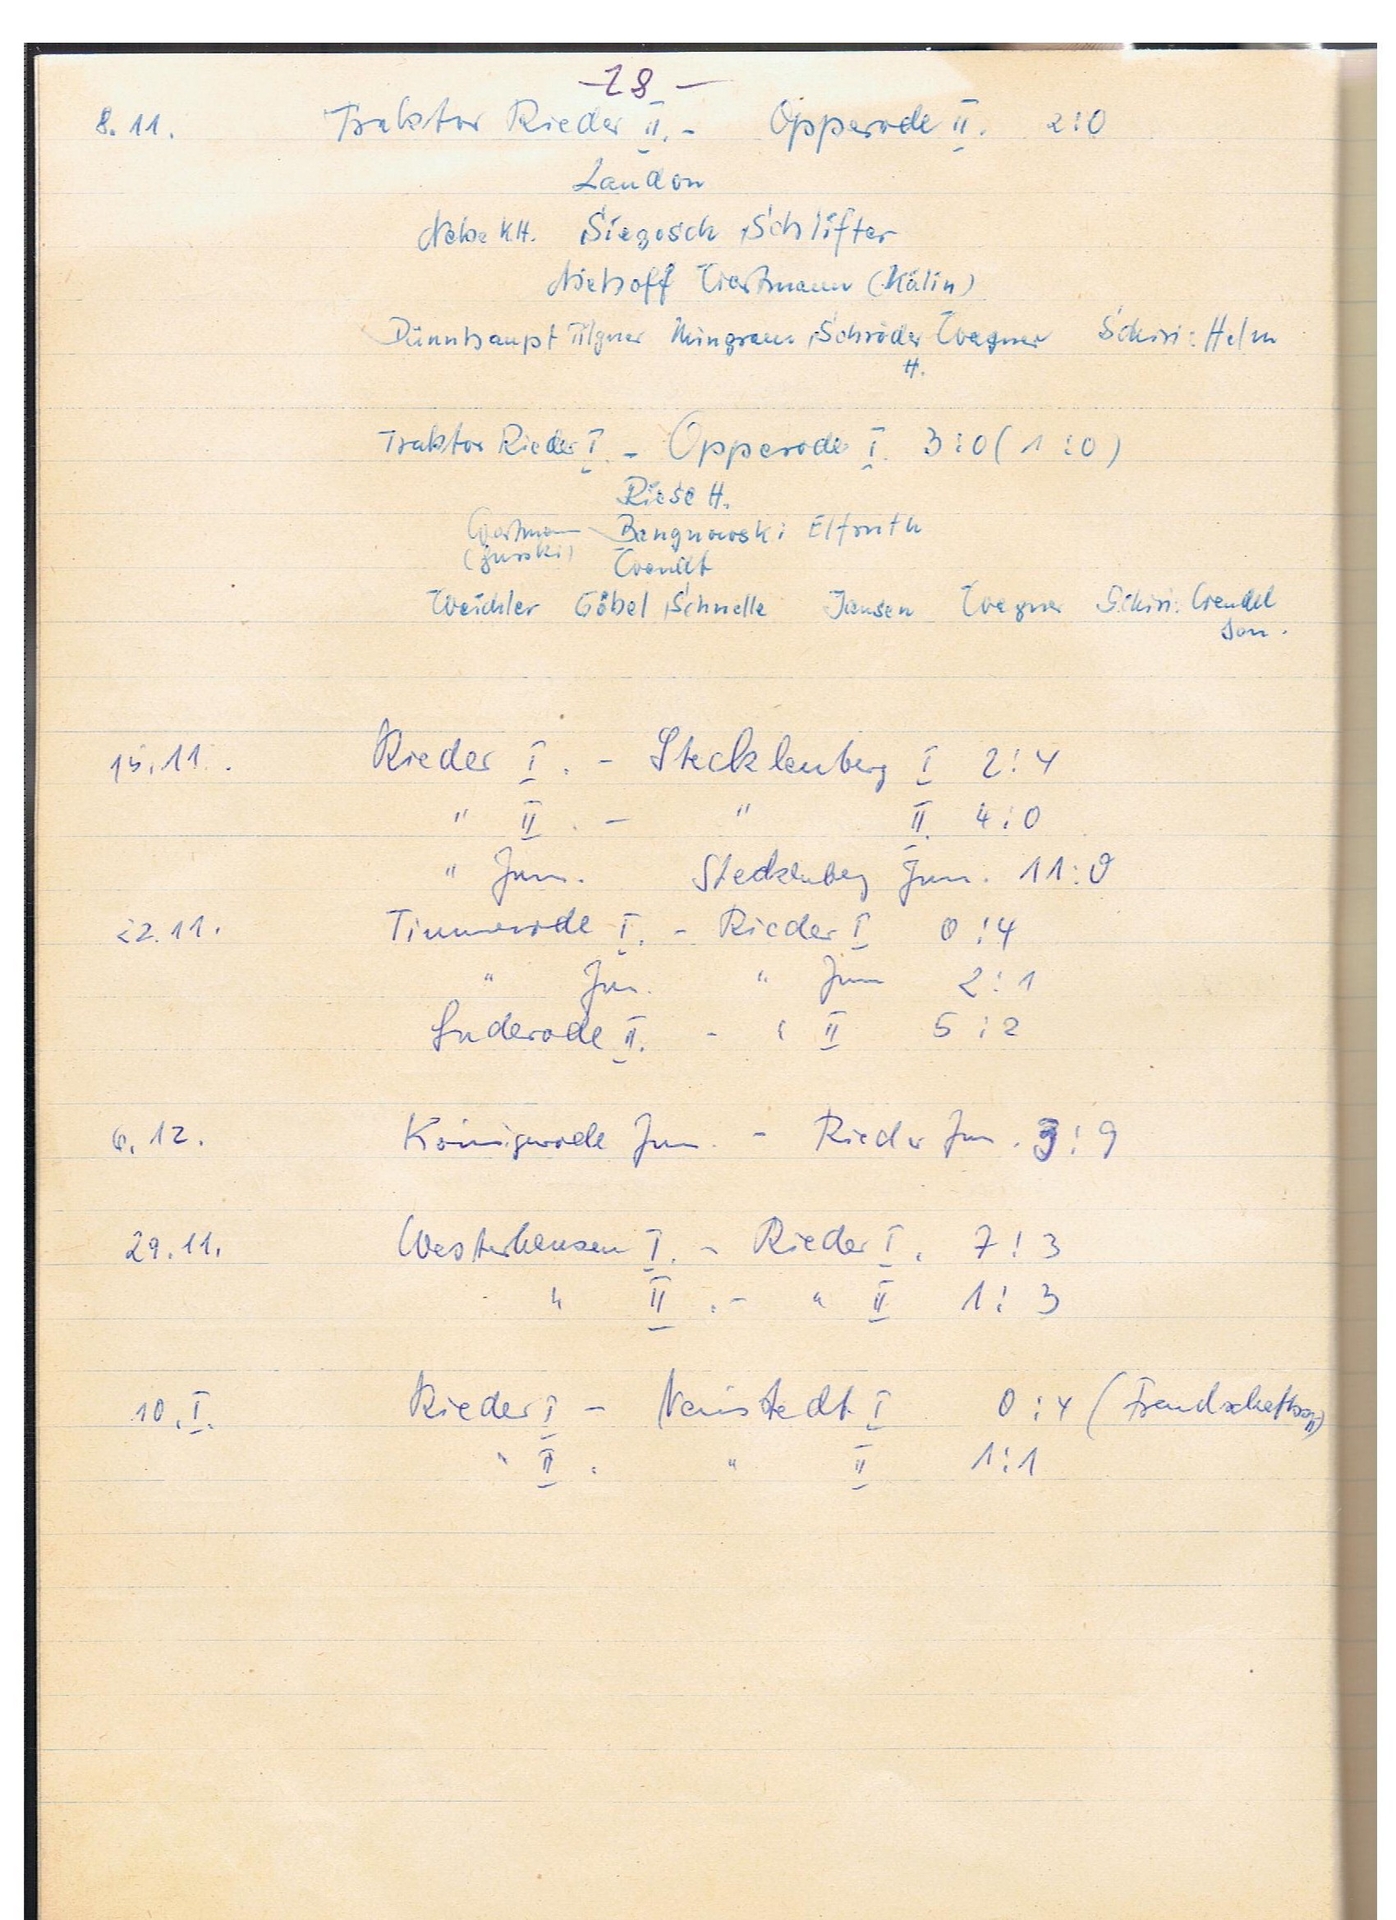 -18-
8.11. Traktor Rieder II. - Opperode II. 2:0
Landon
Nebe KH. Siegosch Schlifter
Niehoff Wartmann (Kälin)
Dünnhaupt Tilgner Mingram Schröder Wagner Schiri: Helm
H.
Traktor Rieder I. - Opperode I. 3:0 (1:0)
Riese H.
Wartmann Bangnowski Elfruth
Wendt
Weichler Göbel Schnelle Jansen Wagner Schiri: Wendel
Sen.
15.11. Rieder I. - Stecklenberg I 2:4
" II. - " II. 4:0
" Jun. Stecklenberg Jun. 11:0
22.11. Timmerode I. - Rieder I 0:4
" Jun. " Jun 2:1
Suderode II. - " II 5:2
6.12. Königerode Jun. - Rieder Jun. 3:9
29.11. Westerhausen I. - Rieder I. 7:3
" II. - " II 1:3
10.I. Rieder I - Neinstedt I 0:4 (
" II. " II 1:1